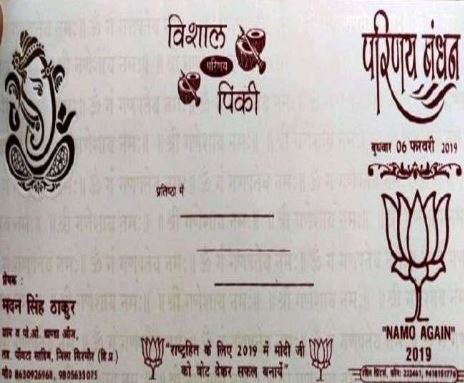 विशाल
परिणय
पिंकी
प्रतिष्ठा में
प्रेषक :
मदन सिंह ठाकुर
ग्राम व पो.ओ.
तह. पांवटा साहिब, जिला सिरमौर (हि.प्र.)
मो० 8630926968, 9805635075
"राष्ट्रहित के लिए 2019 में मोदी जी
को वोट देकर सफल बनायें"
परिणय बंधन
बुधवार 06 फरवरी 2019
"NAMO AGAIN"
2019